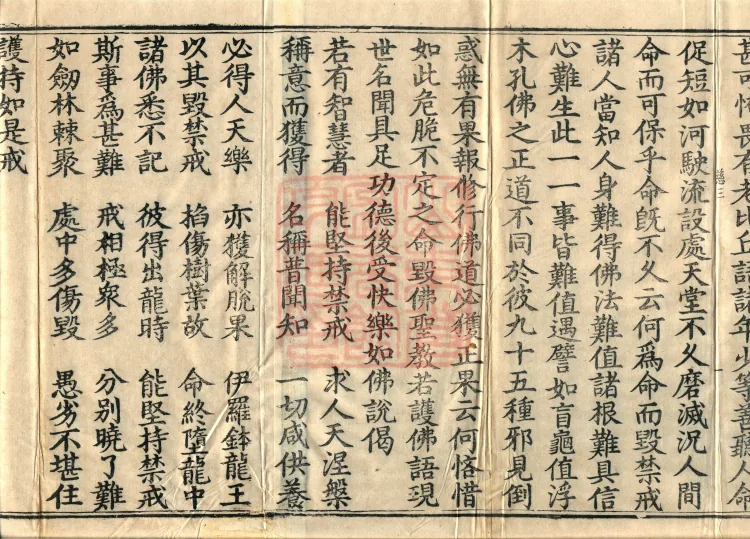 甚可怖畏有老比丘語諸年少等善聽人命
促短如河駛流設處天堂不久磨滅況人間
命而可保乎命既不久云何爲命而毀禁戒
諸人當知人身難得佛法難值諸根難具信
心難生此一一事皆難值遇譬如盲龜值浮
木孔佛之正道不同於彼九十五種邪見倒
惑無有果報修行佛道必獲正果云何悋惜
如此危脆不定之命毀佛聖教若護佛語現
世名聞具足功德後受快樂如佛說偈
若有智慧者 能堅持禁戒 求人天涅槃
稱意而獲得 名稱普聞知 一切咸供養
必得人天樂 亦獲解脫果 伊羅鉢龍王
以其毀禁戒 掐傷樹葉故 命終墮龍中
諸佛悉不記 彼得出龍時 能堅持禁戒
斯事爲甚難 戒相極衆多 分別曉了難
如劒林棘聚 處中多傷毀 愚劣不堪住
護持如是戒